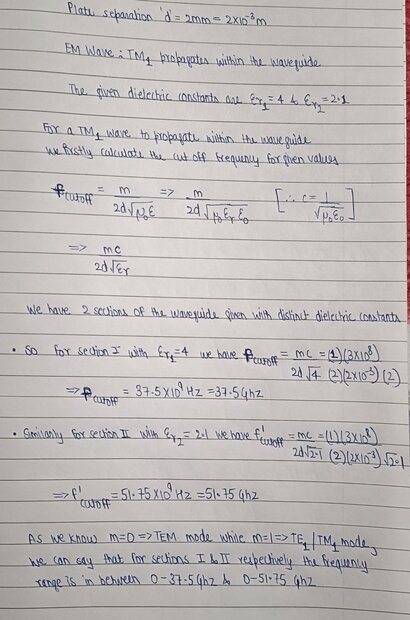 Plate separation 'd' = 2mm = 2x10⁻³m
EM Wave : TM₁ propagates within the waveguide
The given dielectric constants are Ɛr₁ = 4 & Ɛr₂ = 2.1
For a TM₁ wave to propagate within the waveguide
we firstly calculate the cut off frequency for given values
fcutoff = m / 2d√μ₀Ɛ => m / 2d√μ₀ƐrƐ₀ [∴ c = 1/√μ₀Ɛ₀]
=> mc / 2d√Ɛr
We have 2 sections of the waveguide given with distinct dielectric constants
• So for section I with Ɛr₁ = 4 we have fcutoff = mc / 2d√4 = (1)(3x10⁸) / (2)(2x10⁻³)(2)
=> fcutoff = 37.5x10⁹ Hz = 37.5Ghz
• Similarly for section II with Ɛr₂ = 2.1 we have f'cutoff = mc / 2d√2.1 = (1)(3x10⁸) / (2)(2x10⁻³)√2.1
=> f'cutoff = 51.75x10⁹ Hz = 51.75 Ghz
As we know m=0 => TEM mode while m=1 => TE₁/TM₁ mode,
we can say that for sections I & II respectively the frequency
range is in between 0-37.5Ghz & 0-51.75 Ghz